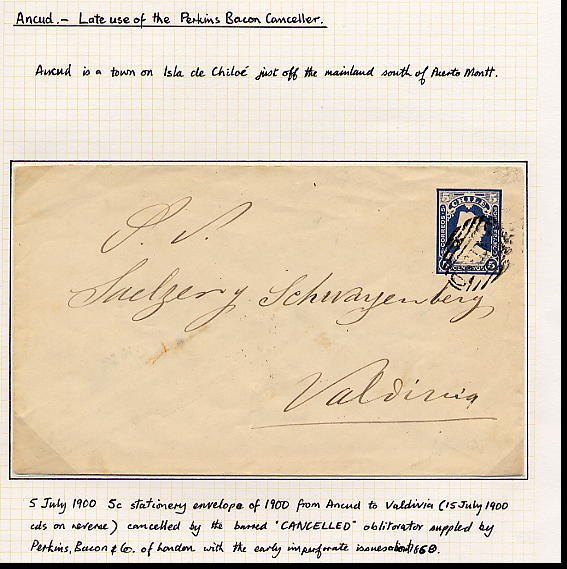 Ancud.— Late use of the Perkins Bacon Canceller.
Ancud is a town on Isla de Chiloé just off the mainland south of Puerto Montt.
CHILE
CORREOS
5
Valdivia
5 July 1900 5c stationery envelope of 1900 from Ancud to Valdivia (15 July 1900
cds on reverse) cancelled by the barred "CANCELLED" obliterator suppled by
Perkins, Bacon & Co. of London with the early imperforate issues